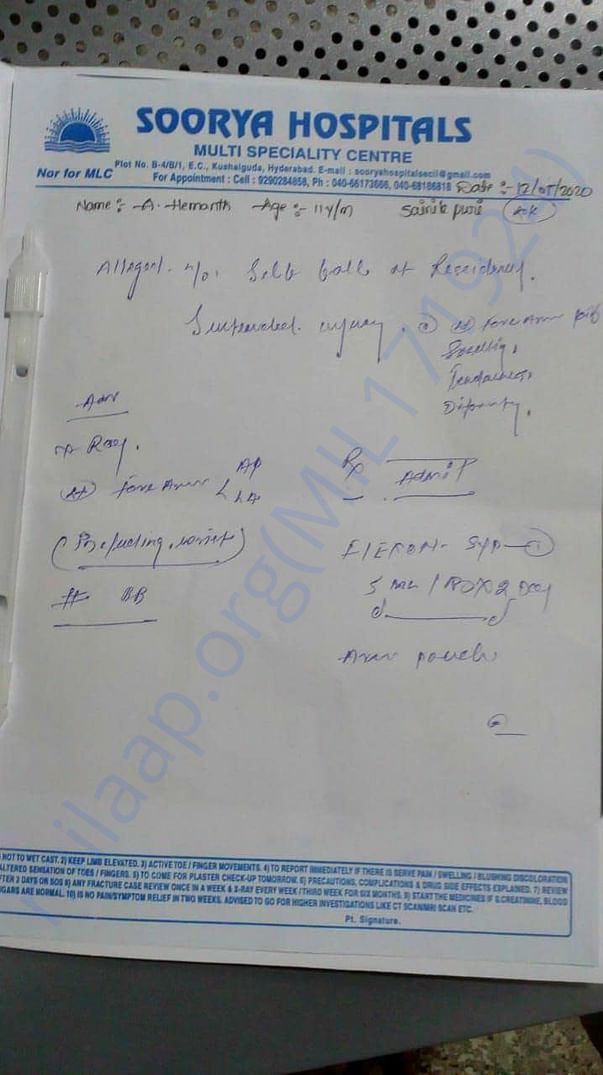 SOORYA HOSPITALS
MULTI SPECIALITY CENTRE
Nor for MLC
Plot No. B-4/B/1, E.C., Kushaiguda, Hyderabad. E-mail : sooryahospitalsecil@gmail.com
For Appointment : Cell : 9290284858, Ph : 040-66173666, 040-68186818
Date :- 12/05/2020
Name :- A. Hemanth Age :- 11y/m Sainik puri
Alleged h/o. Self fall at Residency.
Sustended injury. Fore Arm
Swelling,
Tenderness,
Adv
X Ray.
Fore Arm AP
LA
(Including wrist)
# BB
Rx
Admit
SYP
5 ML
Arm pouch
NOT TO WET CAST. 2) KEEP LIMB ELEVATED. 3) ACTIVE TOE / FINGER MOVEMENTS. 4) TO REPORT IMMEDIATELY IF THERE IS SERVE PAIN / SWELLING / BLUSHING DISCOLORATION
ALTERED SENSATION OF TOES / FINGERS. 5) TO COME FOR PLASTER CHECK-UP TOMORROW. 6) PRECAUTIONS, COMPLICATIONS & DRUG SIDE EFFECTS EXPLAINED. 7) REVIEW
AFTER 3 DAYS OR SOS 8) ANY FRACTURE CASE REVIEW ONCE IN A WEEK & X-RAY EVERY WEEK / THIRD WEEK FOR SIX MONTHS. 9) START THE MEDICINES IF S.CREATININE, BLOOD
SUGARS ARE NORMAL. 10) IS NO PAIN/SYMPTOM RELIEF IN TWO WEEKS. ADVISED TO GO FOR HIGHER INVESTIGATIONS LIKE CT SCAN/MRI SCAN ETC.
Pt. Signature.
milaap.org(MIL171924)